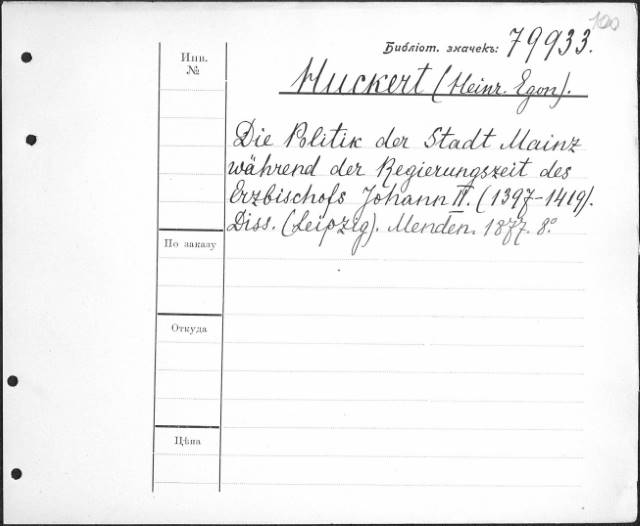 100
Библіот. значекъ: 79933.
Инв.
№
Huckert (Heinr. Egon).
Die Politik der Stadt Mainz
während der Regierungszeit des
Erzbischofs Johann II. (1397-1419).
Diss. (Leipzig). Menden. 1877. 8°
По заказу
Откуда
Цѣна